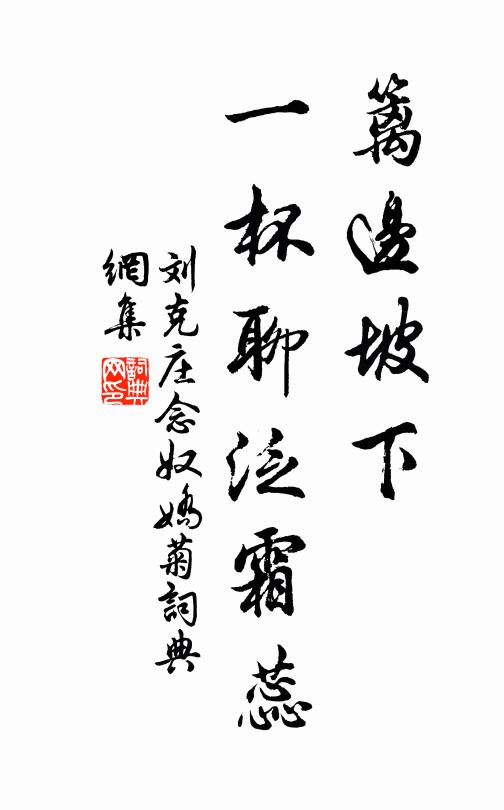 籬邊坡下
一杯聊泛霜蕊
刘克庄念奴嬌菊詞典
網集
詞典网印